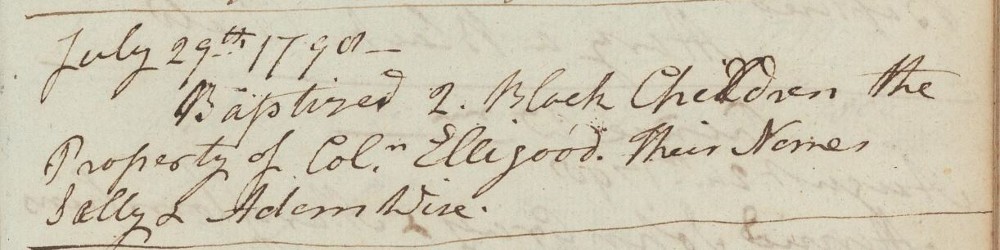 July 29th 1798 —
Baptized 2. Black Children the
Property of Col.n Elligood. Their Names
Sally & Adam Wise.